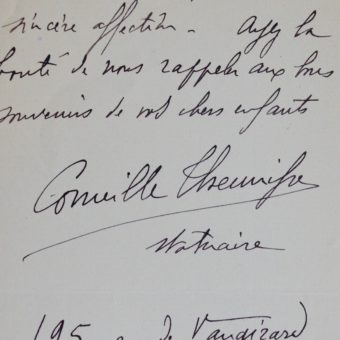 sincère affection - Ayez la
bonté de nous rappeler aux bons
souvenirs de vos chers enfants
Corneille Theunissen
statuaire
195 r. de Vaugirard